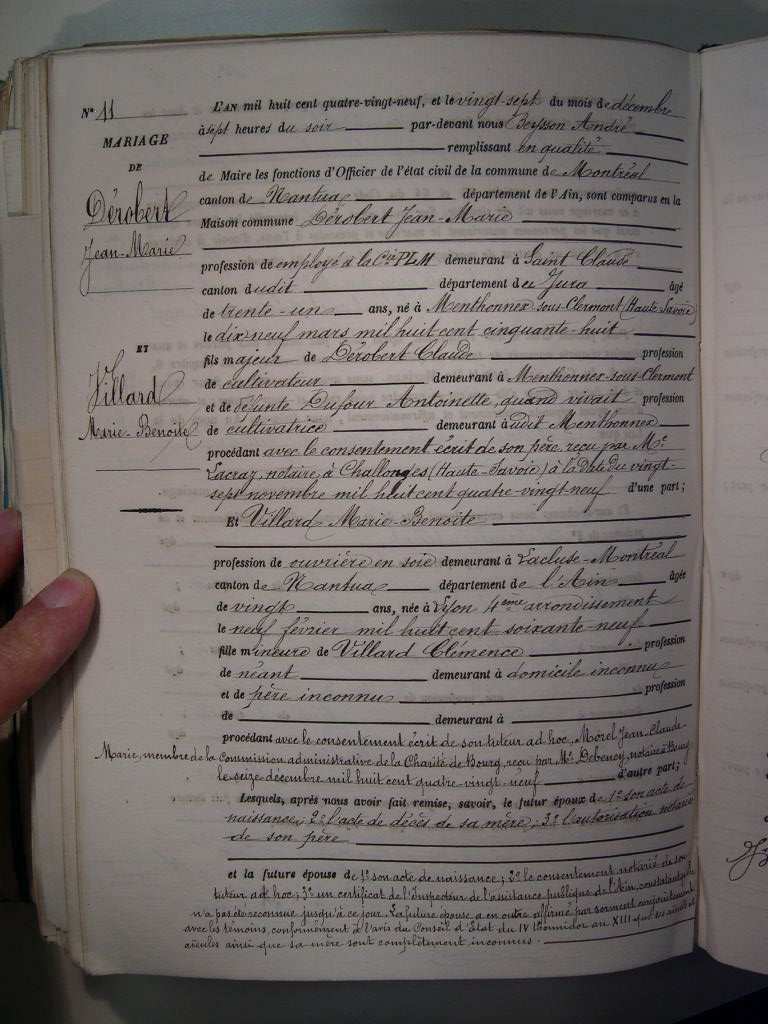 N° 11
MARIAGE
DE
Dérobert
Jean-Marie
ET
Villard
Marie-Benoite
L'AN mil huit cent quatre-vingt-neuf, et le vingt-sept du mois de décembre
à sept heures du soir par-devant nous Beysson André
remplissant en qualité
de Maire les fonctions d'Officier de l'état civil de la commune de Montréal
canton de Nantua département de l'Ain, sont comparus en la
Maison commune Dérobert Jean-Marie
profession de employé à la Cie PLM demeurant à Saint Claude
canton dudit département du Jura âgé
de trente-un ans, né à Menthonnex-sous-Clermont (Haute-Savoie)
le dix-neuf mars mil huit cent cinquante-huit
fils majeur de Dérobert Claude profession
de cultivateur demeurant à Menthonnex-sous-Clermont
et de défunte Dufour Antoinette, quand vivait, profession
de cultivatrice demeurant audit Menthonnex
procédant avec le consentement écrit de son père, reçu par Me
Lacraz, notaire, à Challonges (Haute-Savoie) à la Date du vingt-
sept novembre mil huit cent quatre-vingt-neuf d'une part;
Et Villard Marie-Benoite
profession de ouvrière en soie demeurant à Lacluse-Montréal
canton de Nantua département de l'Ain âgée
de vingt ans, née à Lyon 4eme arrondissement
le neuf février mil huit cent soixante-neuf
fille mineure de Villard Clémence profession
de néant demeurant à domicile inconnu
et de père inconnu profession
de demeurant à
procédant avec le consentement écrit de son tuteur ad hoc, Morel Jean-Claude-
Marie, membre de la Commission administrative de la Charité de Bourg, reçu par Me Debeney, notaire à Bourg
le seize décembre mil huit cent quatre-vingt-neuf d'autre part;
Lesquels, après nous avoir fait remise, savoir, le futur époux de 1° son acte de
naissance; 2° l'acte de décès de sa mère; 3° l'autorisation notariée
de son père
et la future épouse de 1° son acte de naissance; 2° le consentement notarié de son
tuteur ad hoc; 3° un certificat de l'Inspecteur de l'assistance publique de l'Ain, constatant qu'il
n'a pas de reconnue jusqu'à ce jour. La future épouse a en outre affirmé par serment conjointement
avec les témoins, conformément à l'avis du Conseil d'Etat du IV thermidor an XIII que ses aïeuls et
aïeules ainsi que sa mère sont complètement inconnus.